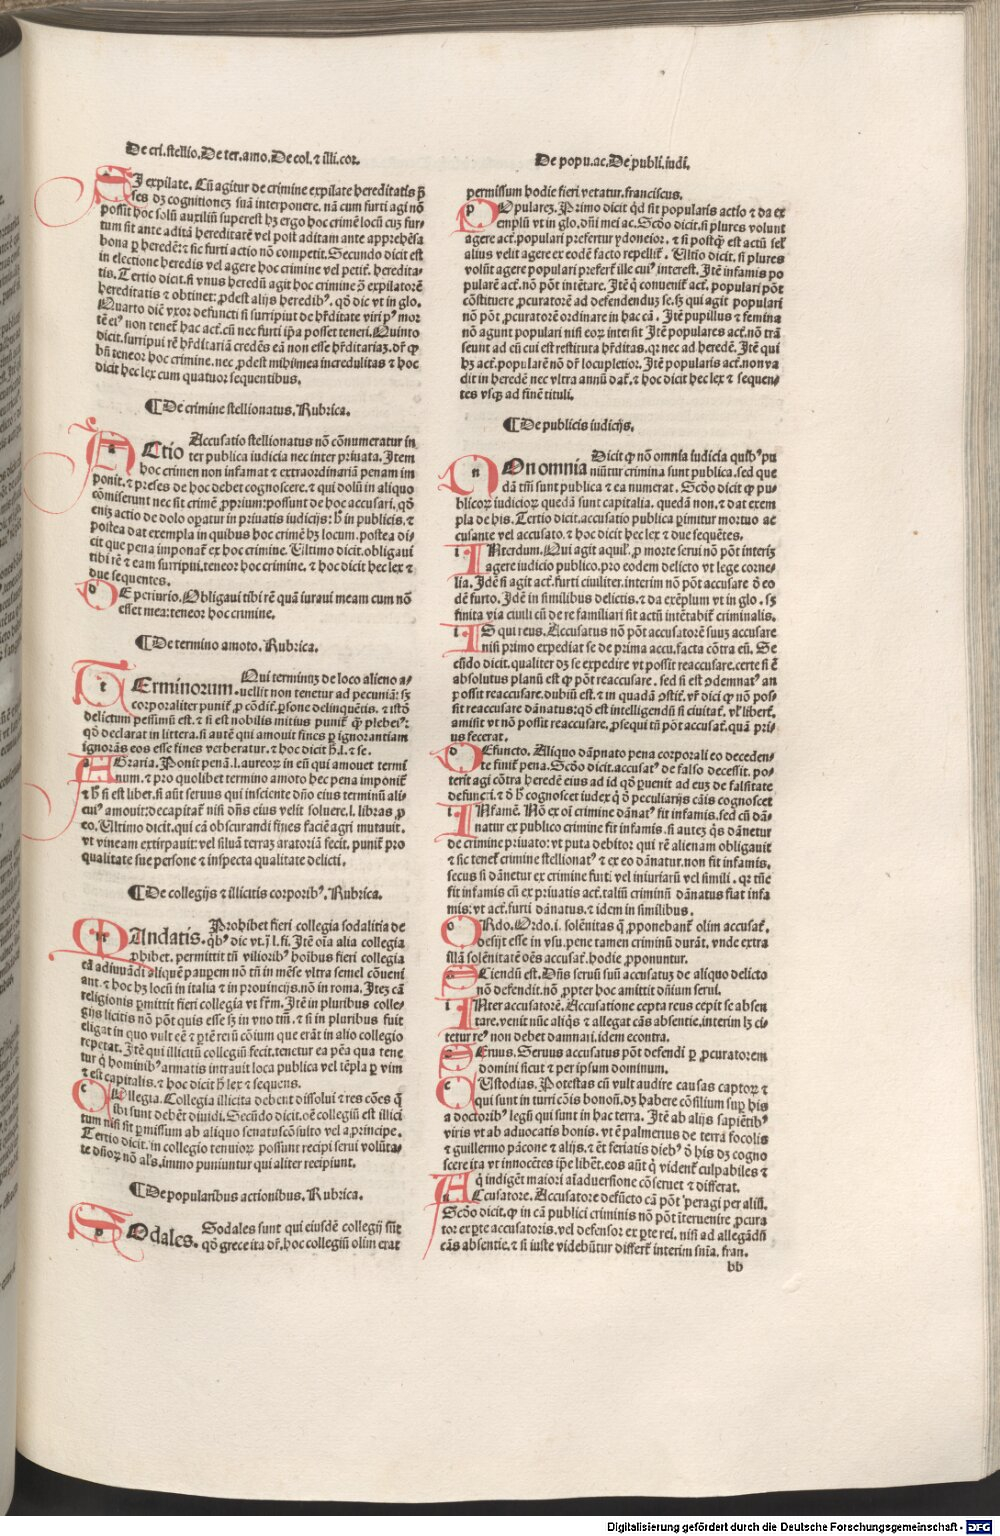 De cri.stellio.De ter.amo.De col.⁊ illi.cor.
SI expilate. Cū agitur de crimine expilate hereditatis p̄
ses dꝫ cognitioneꝫ suā interponere. nā cum furti agi nō
possit hoc solū auxiliū superest hꝫ ergo hoc crimē locū cuꝫ fur-
tum sit ante aditā hereditatē vel post aditam ante apprehēsa
bona ꝑ heredē: ⁊ sic furti actio nō competit. Secundo dicit est
in electione heredis vel agere hoc crimine vel petit. heredita-
tis. Tertio dicit. si vnus heredū agit hoc crimine ꝯ̄ expilatorē
hereditatis ⁊ obtinet: ꝓdest alijs heredibꝰ. qđ dic vt in glo.
Quarto dic̄ vxor defuncti si surripiut de hr̄ditate viri pꝰ mor
tē eiꝰ non teneť hac act̄. cū nec furti ip̄a posset teneri. Quinto
dicit. surripui rē hr̄ditariā credēs eā non esse hr̄ditariaꝫ. dr̄ ꝙ
bn̄ teneor hoc crimine. nec ꝓdest mihi mea incredulitas ⁊ hoc
dicit hec lex cum quatuor sequentibus.
¶De crimine stellionatus. Rubrica.
ACtio Accusatio stellionatus nō cōnumeratur in
ter publica iudicia nec inter priuata. Item
hoc crimen non infamat ⁊ extraordinariā penam im
ponit. ⁊ preses de hoc debet cognoscere. ⁊ qui dolū in aliquo
cōmiserunt nec sit crimē ꝓprium: possunt de hoc accusari. qđ
eniꝫ actio de dolo operatur in priuatis iudicijs: ħ in publicis. ⁊
postea dat exempla in quibus hoc crimē hꝫ locum. postea di
cit que pena imponať ex hoc crimine. Vltimo dicit. obligaui
tibi rē ⁊ eam surripui. teneor hoc crimine. ⁊ hoc dicit hec lex ⁊
due sequentes.
DE periurio. Obligaui tibi rē quā iuraui meam cum nō
esset mea: teneor hoc crimine.
¶De termino amoto. Rubrica.
TErminorum. Qui terminuꝫ de loco alieno a-
uellit non tenetur ad pecuniā: sꝫ
corporaliter puniť ꝓ cōdit. ꝑsone delinquētis. ⁊ istđ
delictum pessimū est. ⁊ si est nobilis mitius puniť ꝙ̄ plebeiꝰ:
qđ declarat in littera. si autē qui amouit fines ꝑ ignorantiam
ignorās eos esse fines verberatur. ⁊ hoc dicit ħ.l. ⁊ se.
AGraria. Ponit penā.l. aureoꝝ in eū qui amouet termi
num. ⁊ pro quolibet termino amoto hec pena imponiť
⁊ ħ si est liber. si aūt seruus qui insciente dn̄o eius terminū ali-
cuiꝰ amouit: decapitať nisi dn̄s eius velit soluere.l. libras ꝓ
eo. Vltimo dicit. qui cā obscurandi fines faciē agri mutauit.
vt vineam extirpauit: vel siluā terraꝫ aratoriā fecit. puniť pro
qualitate sue persone ⁊ inspecta qualitate delicti.
¶De collegijs ⁊ illicitis corporibꝰ. Rubrica.
MAndatis. Prohibet fieri collegia sodalitia de
qbꝰ dic vt.j.l.fi. Itē oīa alia collegia
ꝓhibet. permittit tn̄ vilioribꝰ hoībus fieri collegia
cā adiuuādi aliquē pauꝑem nō tn̄ in mēse vltra semel cōueni
ant. ⁊ hoc hꝫ locū in italia ⁊ in prouincijs. nō in roma. Iteꝫ cā
religionis ꝑmittit fieri collegia vt sr̄m. Itē in pluribus colle-
gijs licitis nō pōt quis esse sꝫ in vno tm̄. ⁊ si in pluribus fuit
eligat in quo vult eē ⁊ ꝑtē rerū cōium que erāt in alio collegio
repetat. Itē qui illicitū collegiū fecit. tenetur ea pēa qua tene
tur q̄ hominibꝰ armatis intrauit loca publica vel tēpla ꝑ vim
⁊ est capitalis. ⁊ hoc dicit ħ lex ⁊ sequens.
COllegia. Collegia illicita debent dissolui ⁊ res cōes q̄
ibi sunt debēt diuidi. Secūdo dicit. oē collegiū est illici
tum nisi sit ꝑmissum ab aliquo senatuscōsulto vel a principe.
Tertio dicit. in collegio tenuioꝝ possunt recipi serui volūta-
te dn̄oꝝ nō al̄s. immo puniuntur qui aliter recipiunt.
¶De popularibus actionibus. Rubrica.
SOdales. Sodales sunt qui eiusdē collegij sūt
qđ grece ita dr̄. hoc collegiū olim erat
De popu.ac.De publi.iudi.
permissum hodie fieri vetatur. franciscus.
POpulareꝫ. Primo dicit qđ sit popularis actio ⁊ da ex
emplū vt in glo. dn̄i mei ac. Scđo dicit. si plures volunt
agere act̄. populari prefertur ydoneior. ⁊ si postꝙ̄ est actū sel̄
alius velit agere ex eodē facto repelliť. Vltio dicit. si plures
volūt agere populari preferť ille cuiꝰ interest. Itē infamis po
pularē act̄. nō pōt intētare. Itē q̄ conueniť act̄. populari pōt
cōstituere ꝓcuratorē ad defendenduꝫ se. sꝫ qui agit populari
nō pōt ꝓcuratorē ordinare in hac cā. Itē pupillus ⁊ femina
nō agunt populari nisi eoꝝ intersit Itē populares act̄. nō trā
seunt ad eū cui est restituta hr̄ditas. qꝛ nec ad heredē. Itē qui
hꝫ act̄. popularē nō dr̄ locupletior. Itē popularis act̄. non va
dit in heredē nec vltra annū dať. ⁊ hoc dicit hec lex ⁊ sequen-
tes vsqꝫ ad finē tituli.
¶De publicis iudicijs.
NOn omnia Dicit ꝙ nō omnia iudicia quibꝰ pu
niūtur crimina sunt publica. sed que
dā tm̄ sunt publica ⁊ ea numerat. Scđo dicit ꝙ pu-
blicoꝝ iudicioꝝ quedā sunt capitalia. quedā non. ⁊ dat exem
pla de his. Tertio dicit. accusatio publica ꝑimitur mortuo ac
cusante vel accusato. ⁊ hoc dicit hec lex ⁊ due sequētes.
INterdum. Qui agit aquil̄. ꝓ morte serui nō pōt interiꝫ
agere iudicio publico. pro eodem delicto vt lege corne-
lia. Idē si agit act̄. furti ciuiliter. interim nō pōt accusare ꝺ eo
dē furto. Idē in similibus delictis. ⁊ da exēplum vt in glo. sꝫ
finita via ciuili cū de re familiari sit actū intētabiť criminalis.
IS qui reus. Accusatus nō pōt accusatorē suuꝫ accusare
nisi primo expediat se de prima accu. facta cōtra eū. Se
cūdo dicit. qualiter dꝫ se expedire vt possit reaccusare. certe si ē
absolutus planū est ꝙ pōt reaccusare. sed si est ꝯdemnatꝰ an
possit reaccusare. dubiū est. ⁊ in quadā ꝯstit̄. vr̄ dici ꝙ nō pos-
sit reaccusare dānatus: qđ est intelligendū si ciuitat̄. vl̄ libert̄.
amisit vt nō possit reaccusare. ꝓsequi tn̄ pōt accusat̄. quā pri-
us fecerat.
DEfuncto. Aliquo dāpnato pena corporali eo deceden-
te finiť pena. Scđo dicit. accusatꝰ de falso decessit. po-
terit agi cōtra heredē eius ad id qđ ꝑuenit ad euꝫ de falsitate
defuncti. ⁊ ꝺ ħ cognoscet iudex q̄ ꝺ peculiarijs cāis cognoscet
INfamē. Nō ex oī crimine dānatꝰ fit infamis. sed cū dā-
natur ex publico crimine fit infamis. si auteꝫ qs dānetur
de crimine priuato: vt puta debitor qui rē alienam obligauit
⁊ sic teneť crimine stellionatꝰ ⁊ ex eo dānatur. non fit infamis.
secus si dānetur ex crimine furti vel iniuriarū vel simili. qꝛ tūc
fit infamis cū ex priuatis act̄. taliū criminū dānatus fiat infa
mis: vt act̄. furti dānatus. ⁊ idem in similibus.
ORdo. Ordo.i. solēnitas q̄ ꝓponebanť olim accusat̄.
desijt esse in vsu. pene tamen criminū durāt. vnde extra
illā solēnitatē oēs accusat̄. hodie ꝓponuntur.
SCiendū est. Dn̄s seruū suū accusatuꝫ de aliquo delicto
nō defendit. nō ꝓpter hoc amittit dn̄ium serui.
INter accusatorē. Accusatione cepta reus cepit se absen
tare. venit nūc aliq̄s ⁊ allegat cās absentie. interim lꝫ ci-
tetur reꝰ non debet damnari. idem econtra.
SEruus. Seruus accusatus pōt defendi ꝑ ꝓcuratorem
domini sicut ⁊ per ipsum dominum.
CUstodias. Potestas cū vult audire causas captoꝝ ⁊
qui sunt in turri cōis bonoū. dꝫ habere cōsilium suꝑ his
a doctoribꝰ legū qui sunt in hac terra. Itē ab alijs sapiētibꝰ
viris vt ab aduocatis bonis. vt ē palmerius de terra focolis
⁊ guillermo pācone ⁊ alijs. ⁊ ēt feriatis diebꝰ ꝺ his dꝫ cogno
scere ita vt innocētes ip̄e liberet. eos aūt q̄ videnť culpabiles ⁊
q̄ indigēt maiori aīaduersione cōseruet ⁊ differat.
ACcusatore. Accusatore defūcto cā pōt ꝑeragi per aliū.
Scđo dicit. ꝙ in cā publici criminis nō pōt īteruenire ꝓcura
tor ex ꝑte accusatoris. vel defensor ex ꝑte rei. nisi ad allegādū
cās absentie. ⁊ si iuste videbūtur differť interim sn̄ia. fran.
bb
Digitalisierung gefördert durch die Deutsche Forschungsgemeinschaft - DFG